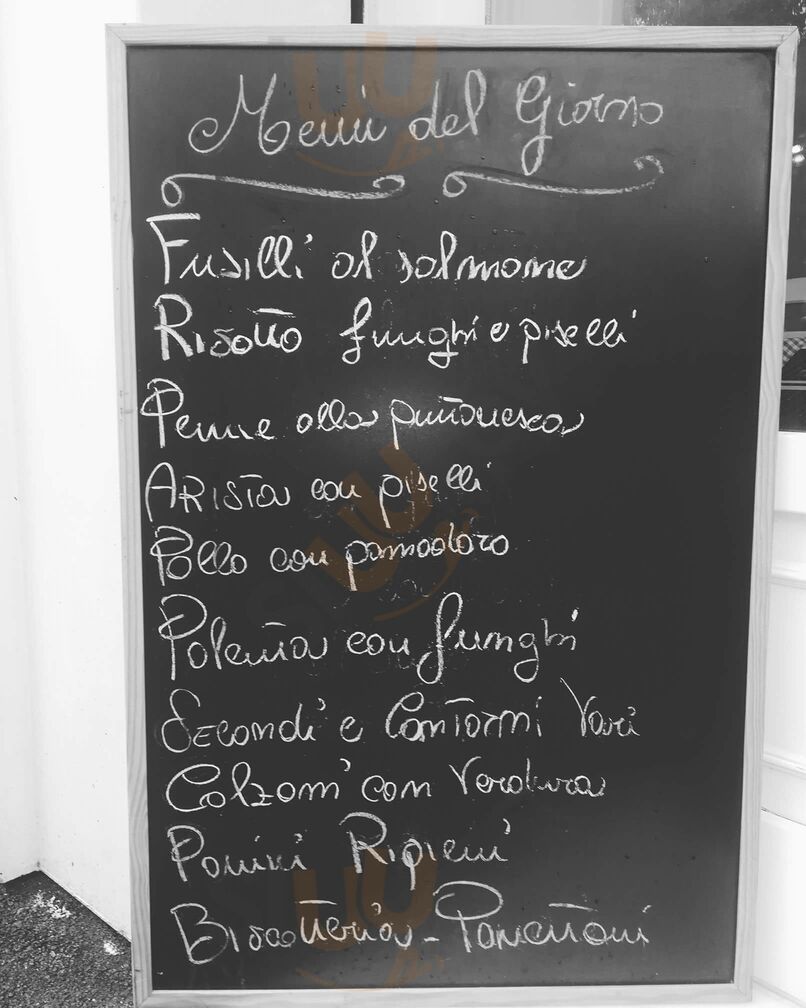 Menù del Giorno
Fusilli al salmone
Risotto funghi e piselli
Penne alla puttanesca
ARISTA con piselli
Pollo con pomodoro
Polenta con funghi
Secondi e Contorni Vari
Calzoni con Verdura
Panini Ripieni
Biscotteria - Pancettoni